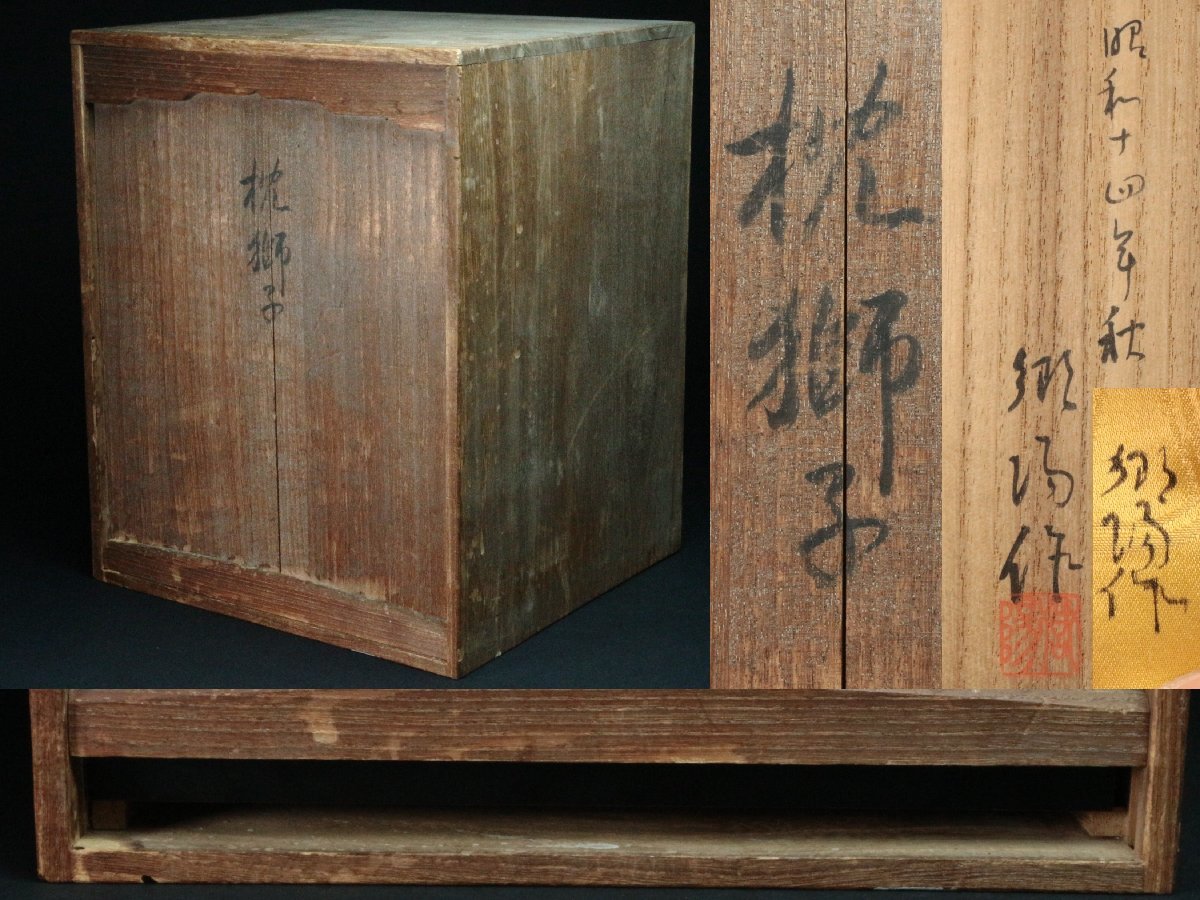 枕獅子
枕獅子
昭和十四年秋
郷陽作
郷陽作